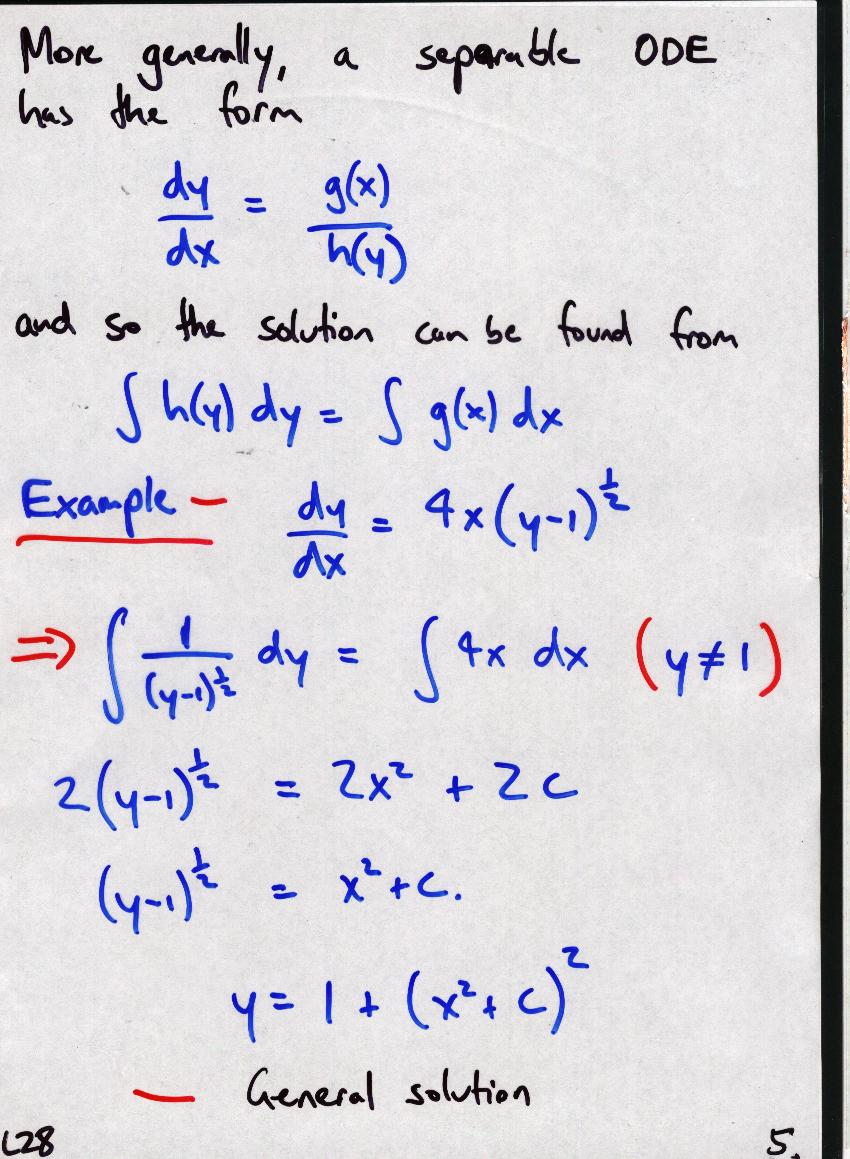 More generally, a separable ODE
has the form
dy/dx = g(x)/h(y)
and so the solution can be found from
∫ h(y) dy = ∫ g(x) dx
Example — dy/dx = 4x(y-1)^½
⇒ ∫ 1/(y-1)^½ dy = ∫ 4x dx (y≠1)
2(y-1)^½ = 2x² + 2c
(y-1)^½ = x²+c.
y = 1 + (x²+c)²
— General solution
L28 5.